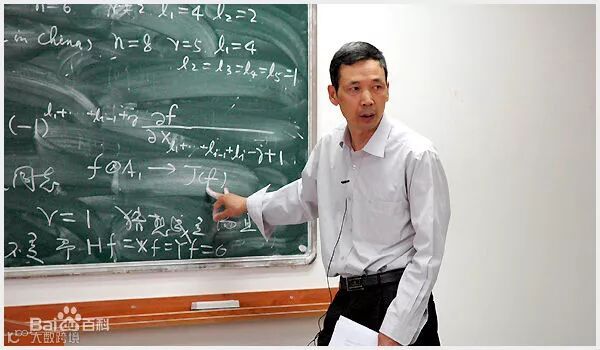 n=6 l₁=4 l₂=2
in China) n=8 r=5 l₁=4
l₂=l₃=l₄=l₅=1
(-1)^{l₁+…+l_{i-1}+j} ∂f/∂x_{l₁+…+l_{i-1}+l_i-j+1}
f⊗A₁ → J(f)
r=1
Hf=Xf=Yf=0
Bai百科
大数跨境